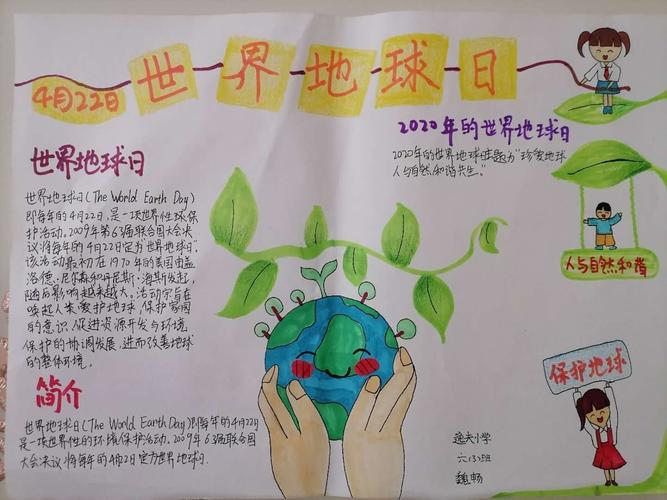 4月22日
世界地球日
世界地球日
世界地球日(The World Earth Day)
即每年的4月22日,是一项世界性环保
护活动。2009年第63届联合国大会决
议将每年的4月22日定为"世界地球日".
该活动最初在1970年的美国由盖
洛德·尼尔森和丹尼斯·海斯发起,
随后影响越来越大。活动宗旨在
唤起人类爱护地球,保护家园
的意识,促进资源开发与环境
保护的协调发展,进而改善地球
的整体环境。
简介
世界地球日(The World Earth Day)即每年的4月22日
是一项世界性的环境保护活动。2009年63届联合国
大会决议将每年的4月2日定为世界地球日.
2020年的世界地球日
2020年的世界地球日主题为"珍爱地球
人与自然和谐共生。"
人与自然和谐
保护地球
逸夫小学
六(3)班
魏畅